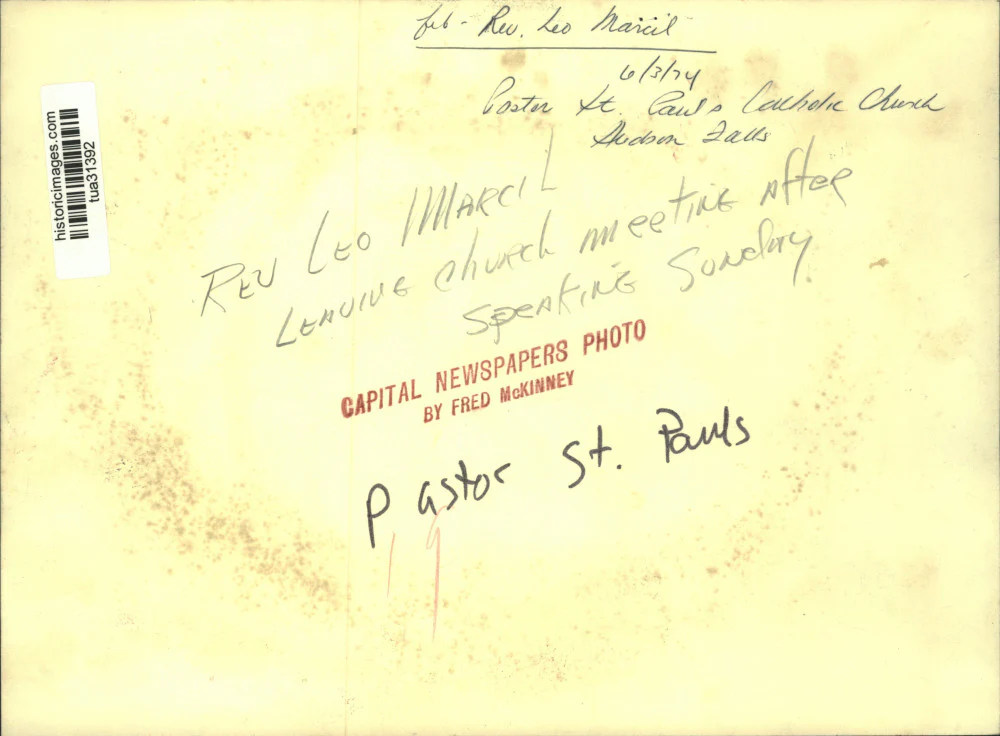 feb - Rev. Leo Marcil
6/3/74
Pastor St. Paul's Catholic Church
Hudson Falls
historicimages.com
tua31392
REV LEO MARCIL
LEAVING church meeting AfteR
SPEAKING SUNDAY.
CAPITAL NEWSPAPERS PHOTO
BY FRED McKINNEY
Pastor St. Pauls
19